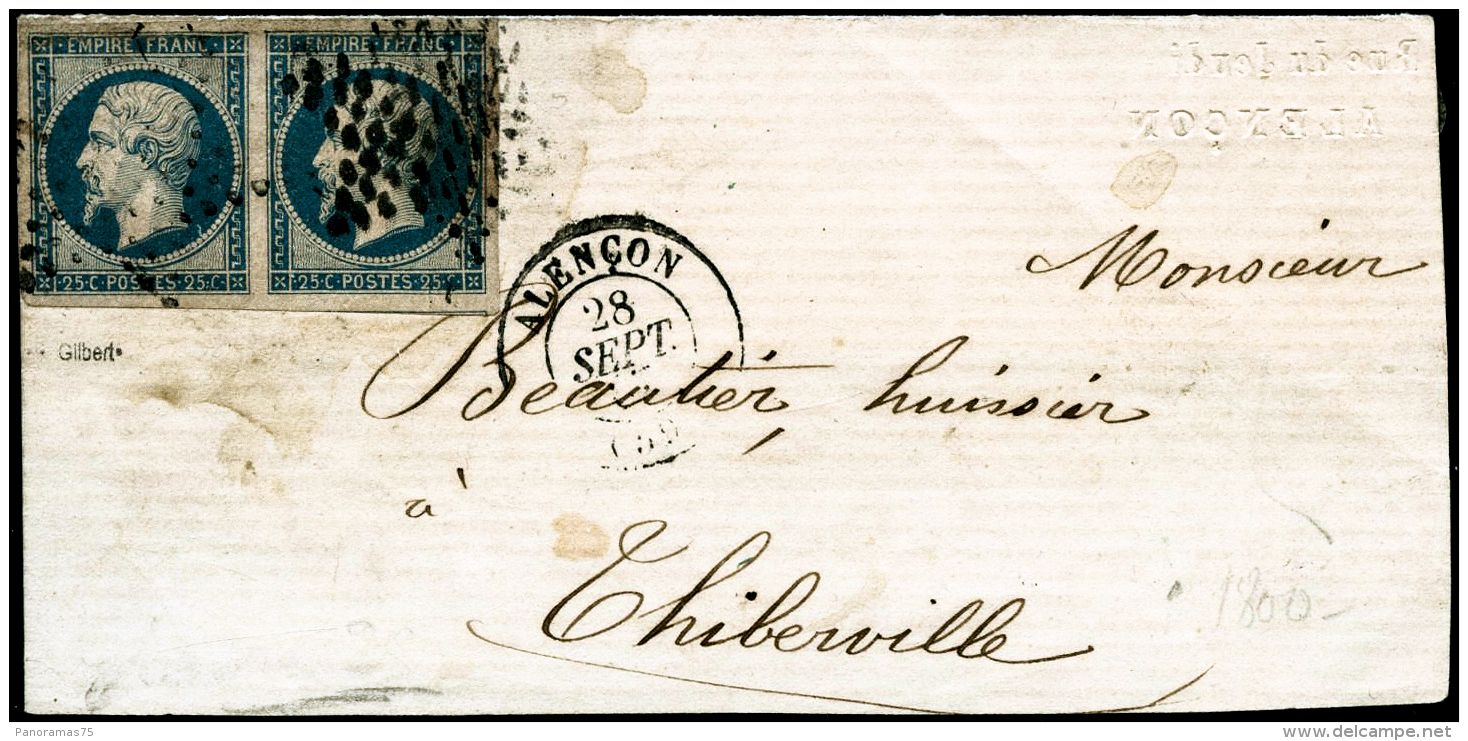 EMPIRE FRANC. EMPIRE FRANC.
25·C·POSTES·25·C· 25·C·POSTES·25·C·
Rue du Jeudi
ALENÇON
ALENÇON
28
SEPT.
Gilbert
Monsieur
Beautier, huissier
à
Thiberville
1800
Panoramas75
www.delcampe.net